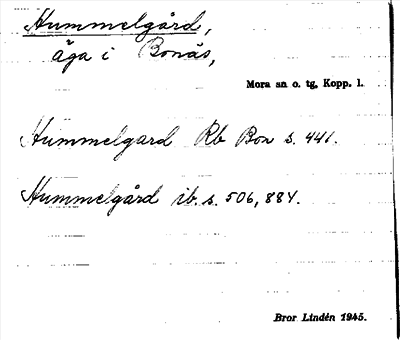 Hummelgård,
äga i Bonäs,
Mora sn o. tg, Kopp. l.
Hummelgard Rb Bon s. 441.
Hummelgård ib. s. 506, 884.
Bror Lindén 1945.